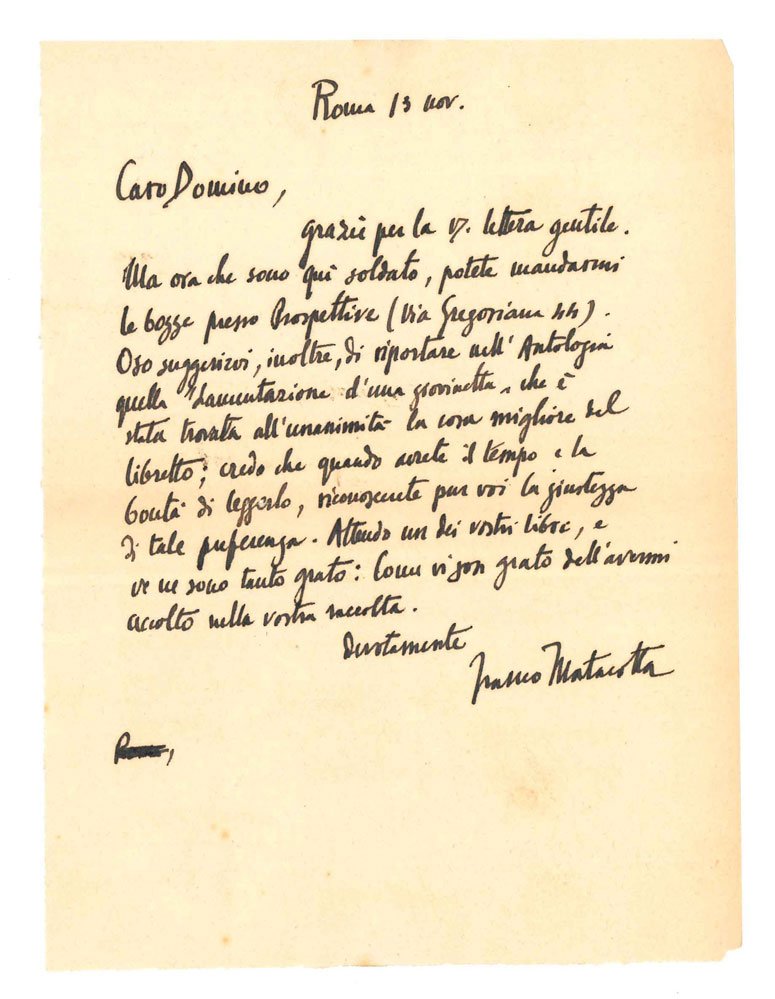 Roma 13 nov.
Caro Domino,
grazie per la V. lettera gentile.
Ma ora che sono qui soldato, potete mandarmi
le bozze presso Prospettive (Via Gregoriana 44).
Oso suggerirvi, inoltre, di riportare nell'Antologia
quella "Lamentazione d'una giovinetta" che è
stata trovata all'unanimità la cosa migliore del
libretto; credo che quando avrete il tempo e la
bontà di leggerlo, riconoscerete pur voi la giustezza
di tale preferenza. Attendo un dei vostri libri, e
ve ne sono tanto grato: Come vi son grato dell'avermi
accolto nella vostra raccolta.
Devotamente
Franco Matacotta